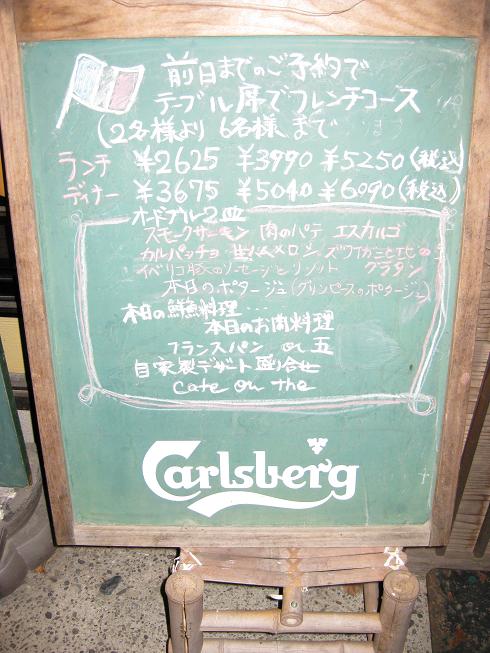 前日までのご予約で
テーブル席でフレンチコース
(2名様より 6名様 まで
ランチ ¥2625 ¥3990 ¥5250(税込)
ディナー ¥3675 ¥5040 ¥6090(税込)
オードブル2皿
スモークサーモン 肉のパテ エスカルゴ
カルパッチョ 生ハムメロン ズワイガニと
イベリコ豚のソーセージとリゾット グラタン
本日のポタージュ(グリンピースのポタージュ)
本日の鮮魚料理...
本日のお肉料理
フランスパン or
自家製デザート盛り合せ
Cafe ou the
Carlsberg